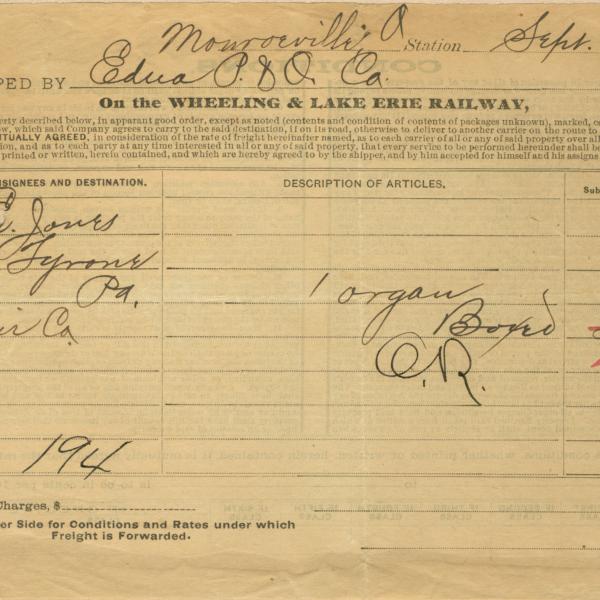 Monroeville, O Station Sept.
PED BY Edna P. & O. Co.
On the WHEELING & LAKE ERIE RAILWAY,
erty described below, in apparant good order, except as noted (contents and condition of contents of packages unknown), marked, co
ow, which said Company agrees to carry to the said destination, if on its road, otherwise to deliver to another carrier on the route to
UTUALLY AGREED, in consideration of the rate of freight hereinafter named, as to each carrier of all or any of said property over all
tion, and as to each party at any time interested in all or any of said property, that every service to be performed hereunder shall be
printed or written, herein contained, and which are hereby agreed to by the shipper, and by him accepted for himself and his assigns
NSIGNEES AND DESTINATION. DESCRIPTION OF ARTICLES.
Sub
Jones
Tyrone
Pa.
1 organ
ir Co. Boxed
O.R.
194
Charges, $
er Side for Conditions and Rates under which
Freight is Forwarded.